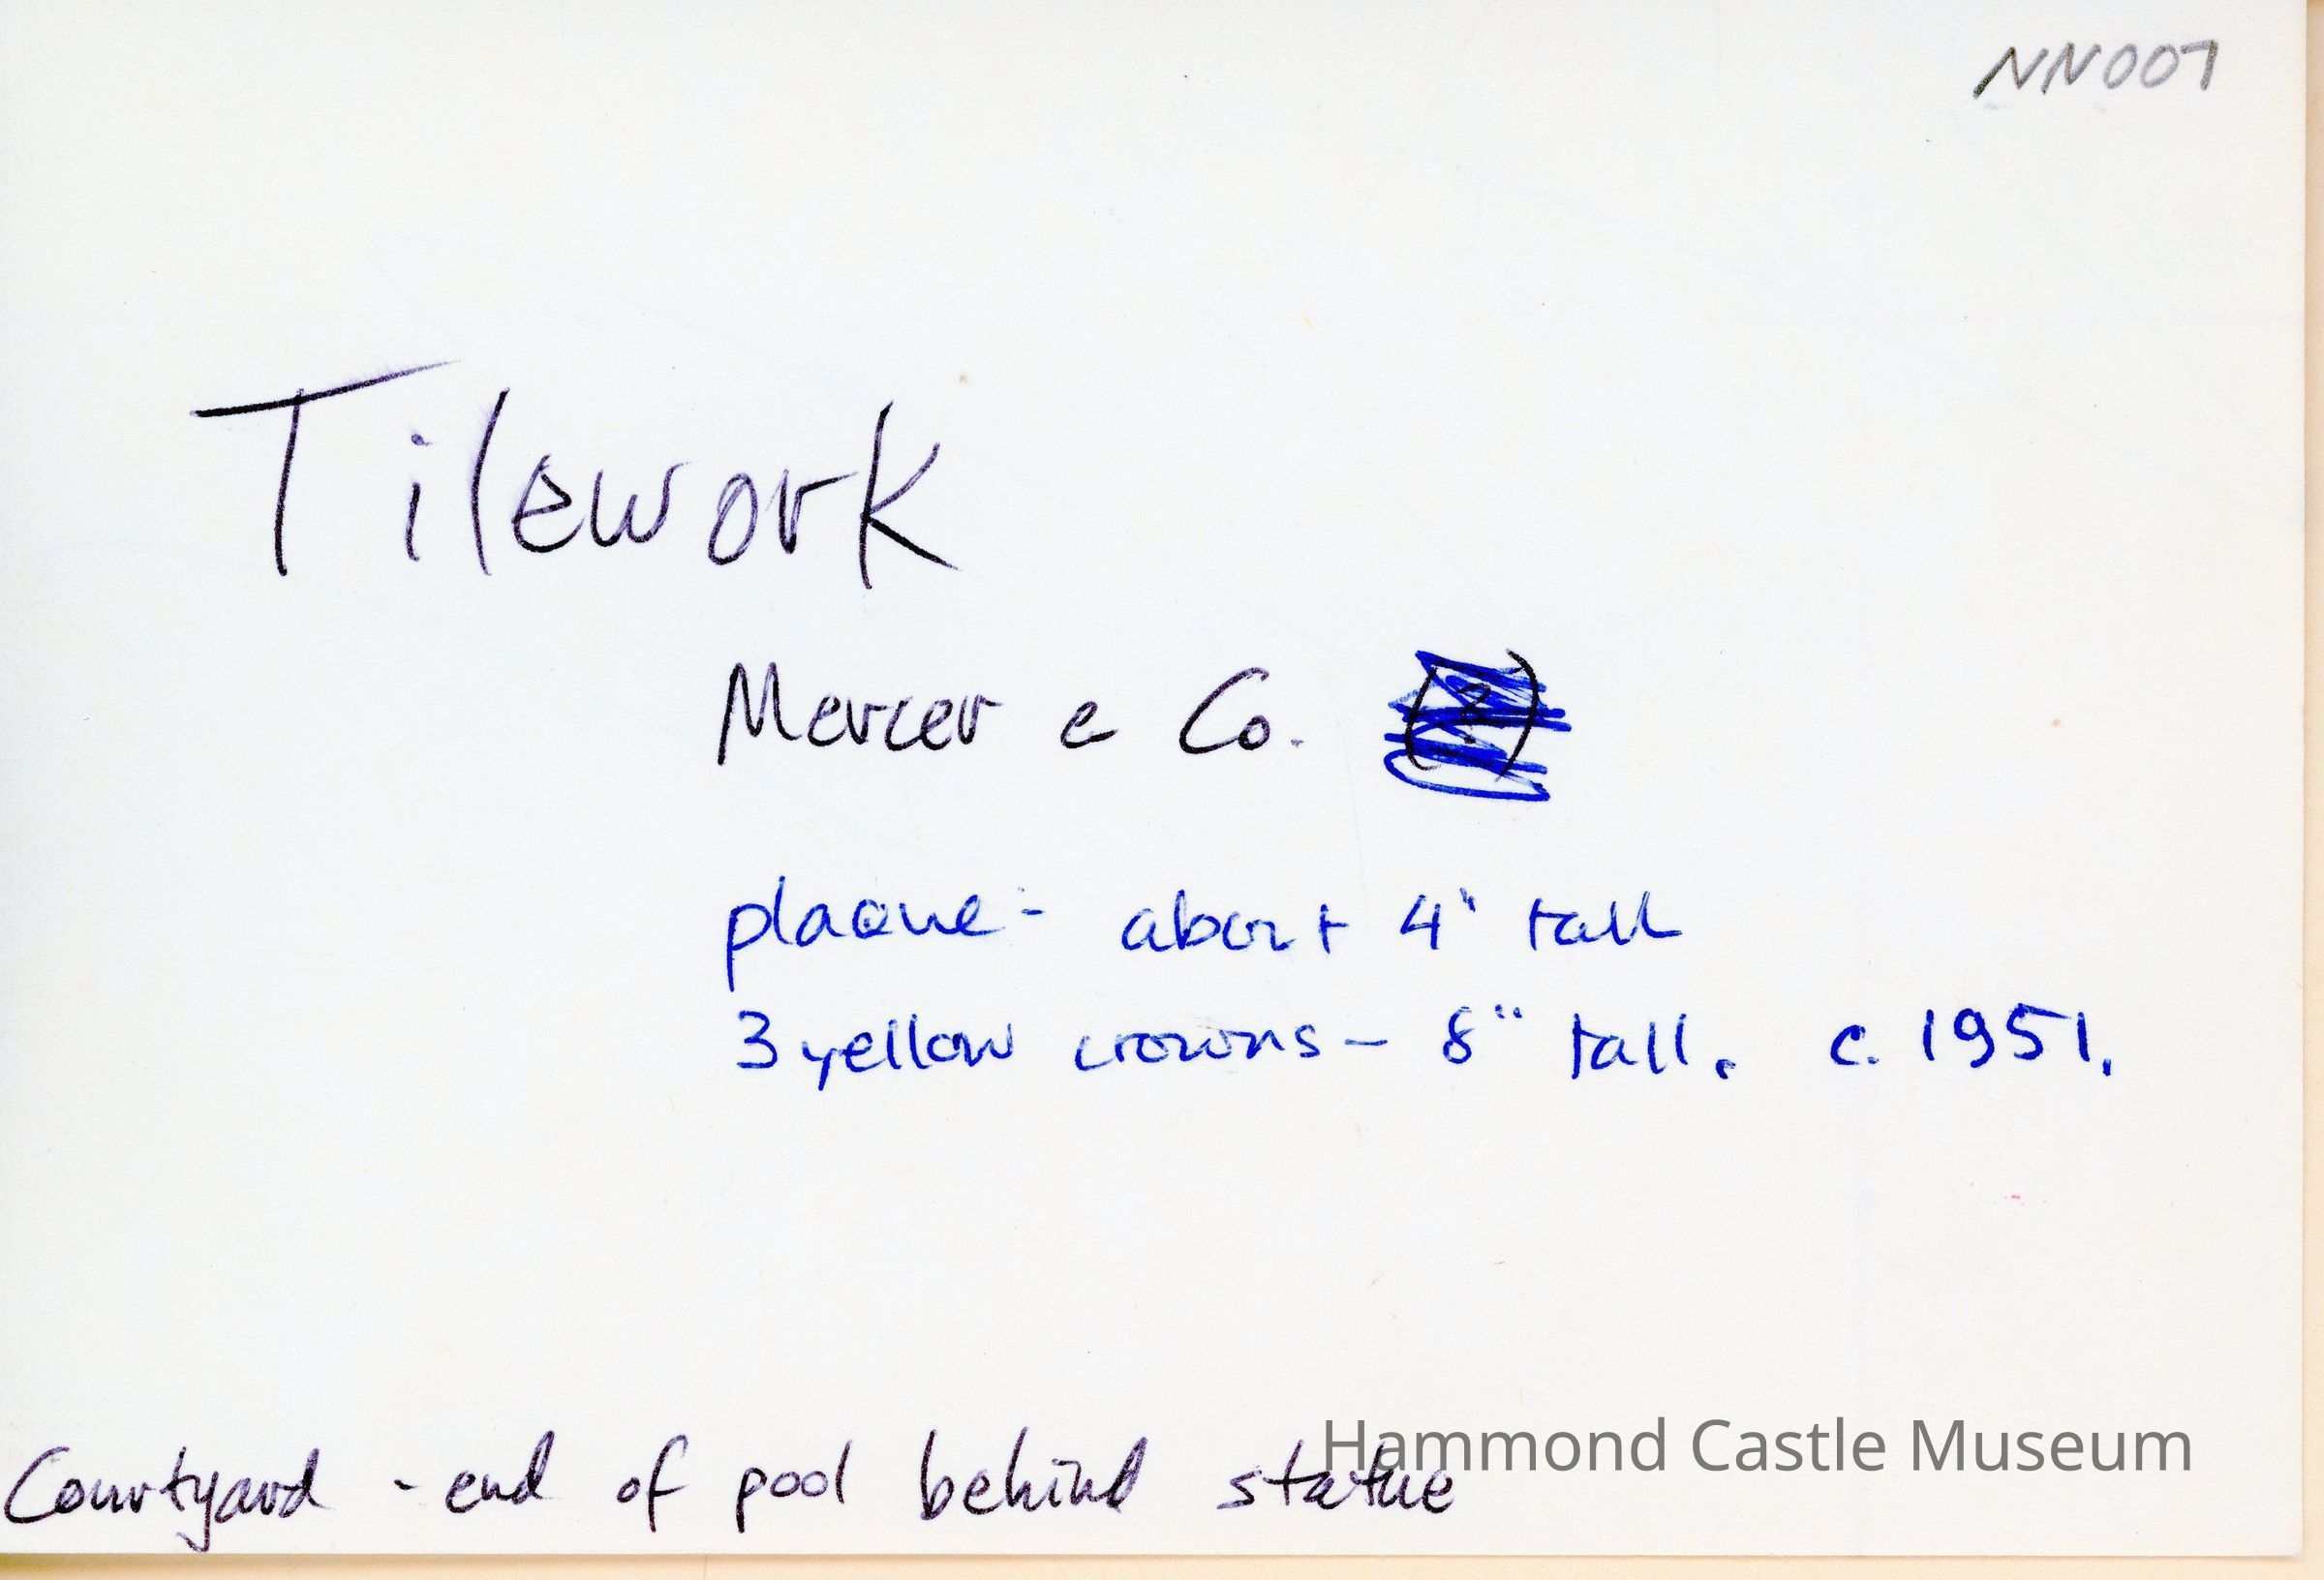 NN007
Tilework
Mercer & Co. (?)
plaque - about 4' tall
3 yellow crowns - 8" tall. c. 1951.
Courtyard - end of pool behind statue
Hammond Castle Museum